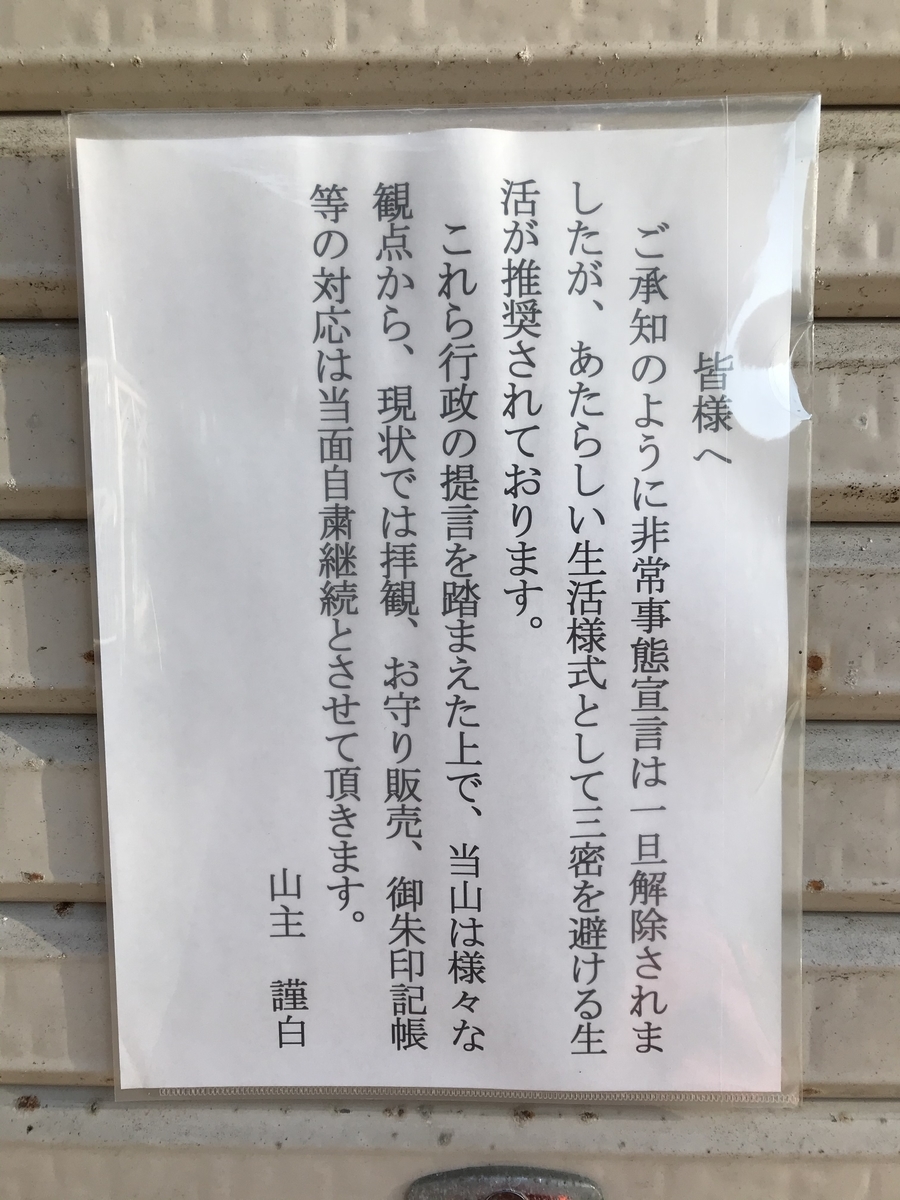 皆様へ
ご承知のように非常事態宣言は一旦解除されま
したが、あたらしい生活様式として三密を避ける生
活が推奨されております。
これら行政の提言を踏まえた上で、当山は様々な
観点から、現状では拝観、お守り販売、御朱印記帳
等の対応は当面自粛継続とさせて頂きます。
山主　謹白